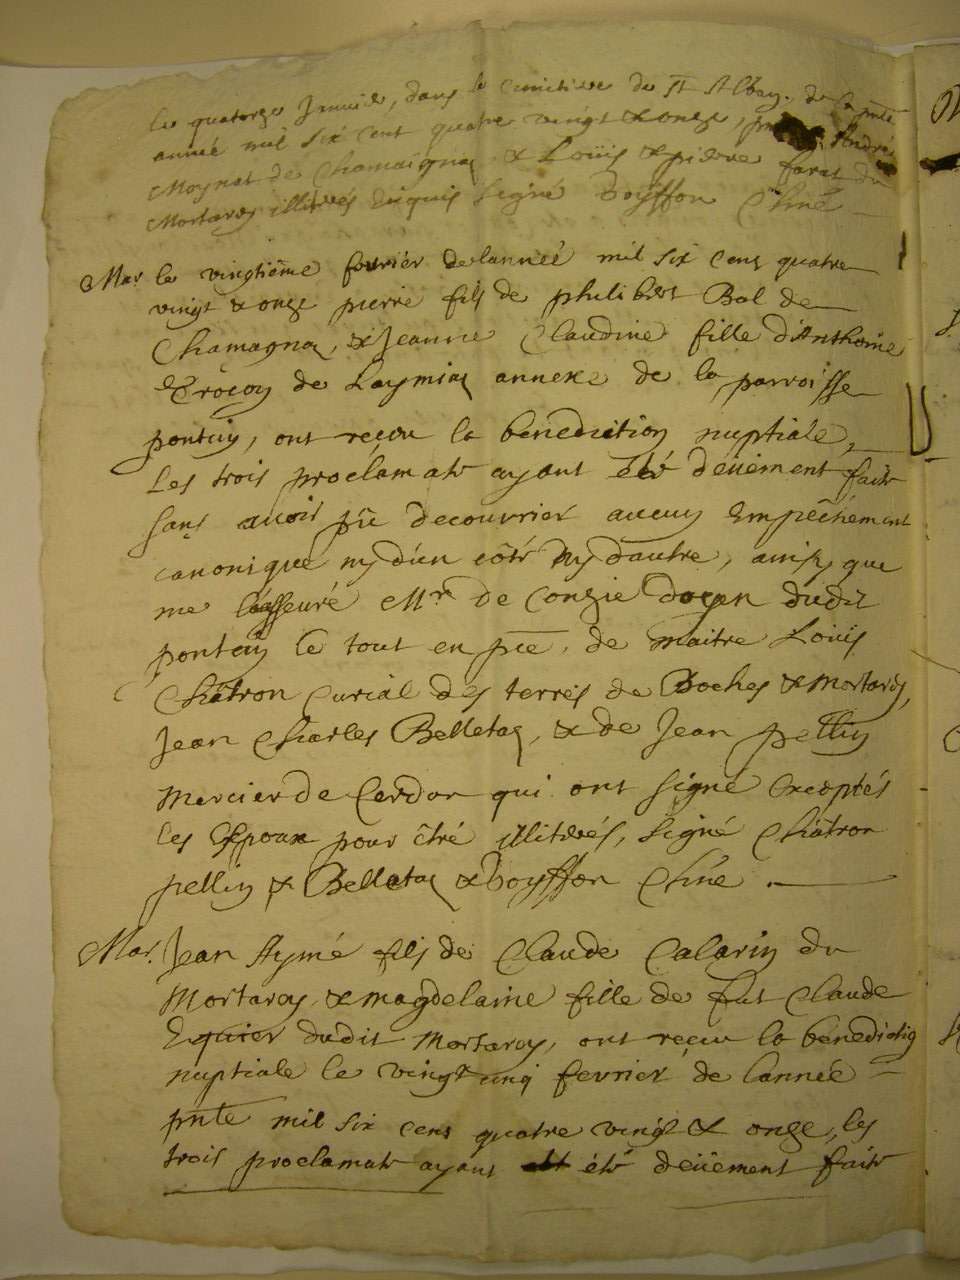 le quatorze Janvier, dans le cimitiere de St Alban, de la pnte
année mil six cent quatre vingt & onze, André
Moynat de Chamaignaz & Loüis & pierre farat du
Mortarey illitérés Enquis Signé Boÿsson Curé
Mar. le vingtième fevriér de lanneé mil six cens quatre
vingt & onze pierre fils de philibert Bal de
Chamagnaz, & Jeanne Claudine fille d'Anthoine
de Leymiaz annexe de la parroisse
pontcin, ont recou la benediction nuptiale,
Les trois proclamats ayant eté deüement faits
sans avoir pû decouvrier aucun Empêchement
canonique ny d'un côté ny d'autre, ainsy que
me lasseuré Mr. de Conzie doyen dudit
pontcin le tout en pnce. de maitre Loüis
Châtron Curial des terres de Boches & Mortarey,
Jean Charles Belletaz, & de Jean pellin
Mercier de Cerdon qui ont signé Exceptés
les Espoux pour êtré illitérés, Signé Châtron
pellin & Belletaz & boysson Curé.
Mar. Jean Aymé fils de Claude Calarin du
Mortarey & magdelaine fille de fut Claude
dudit Mortarey, ont receu la benediction
nuptiale le vingt cinq fevrier de lanneé
pnte mil six cens quatre vingt & onze, les
trois proclamats ayant été deüement faits